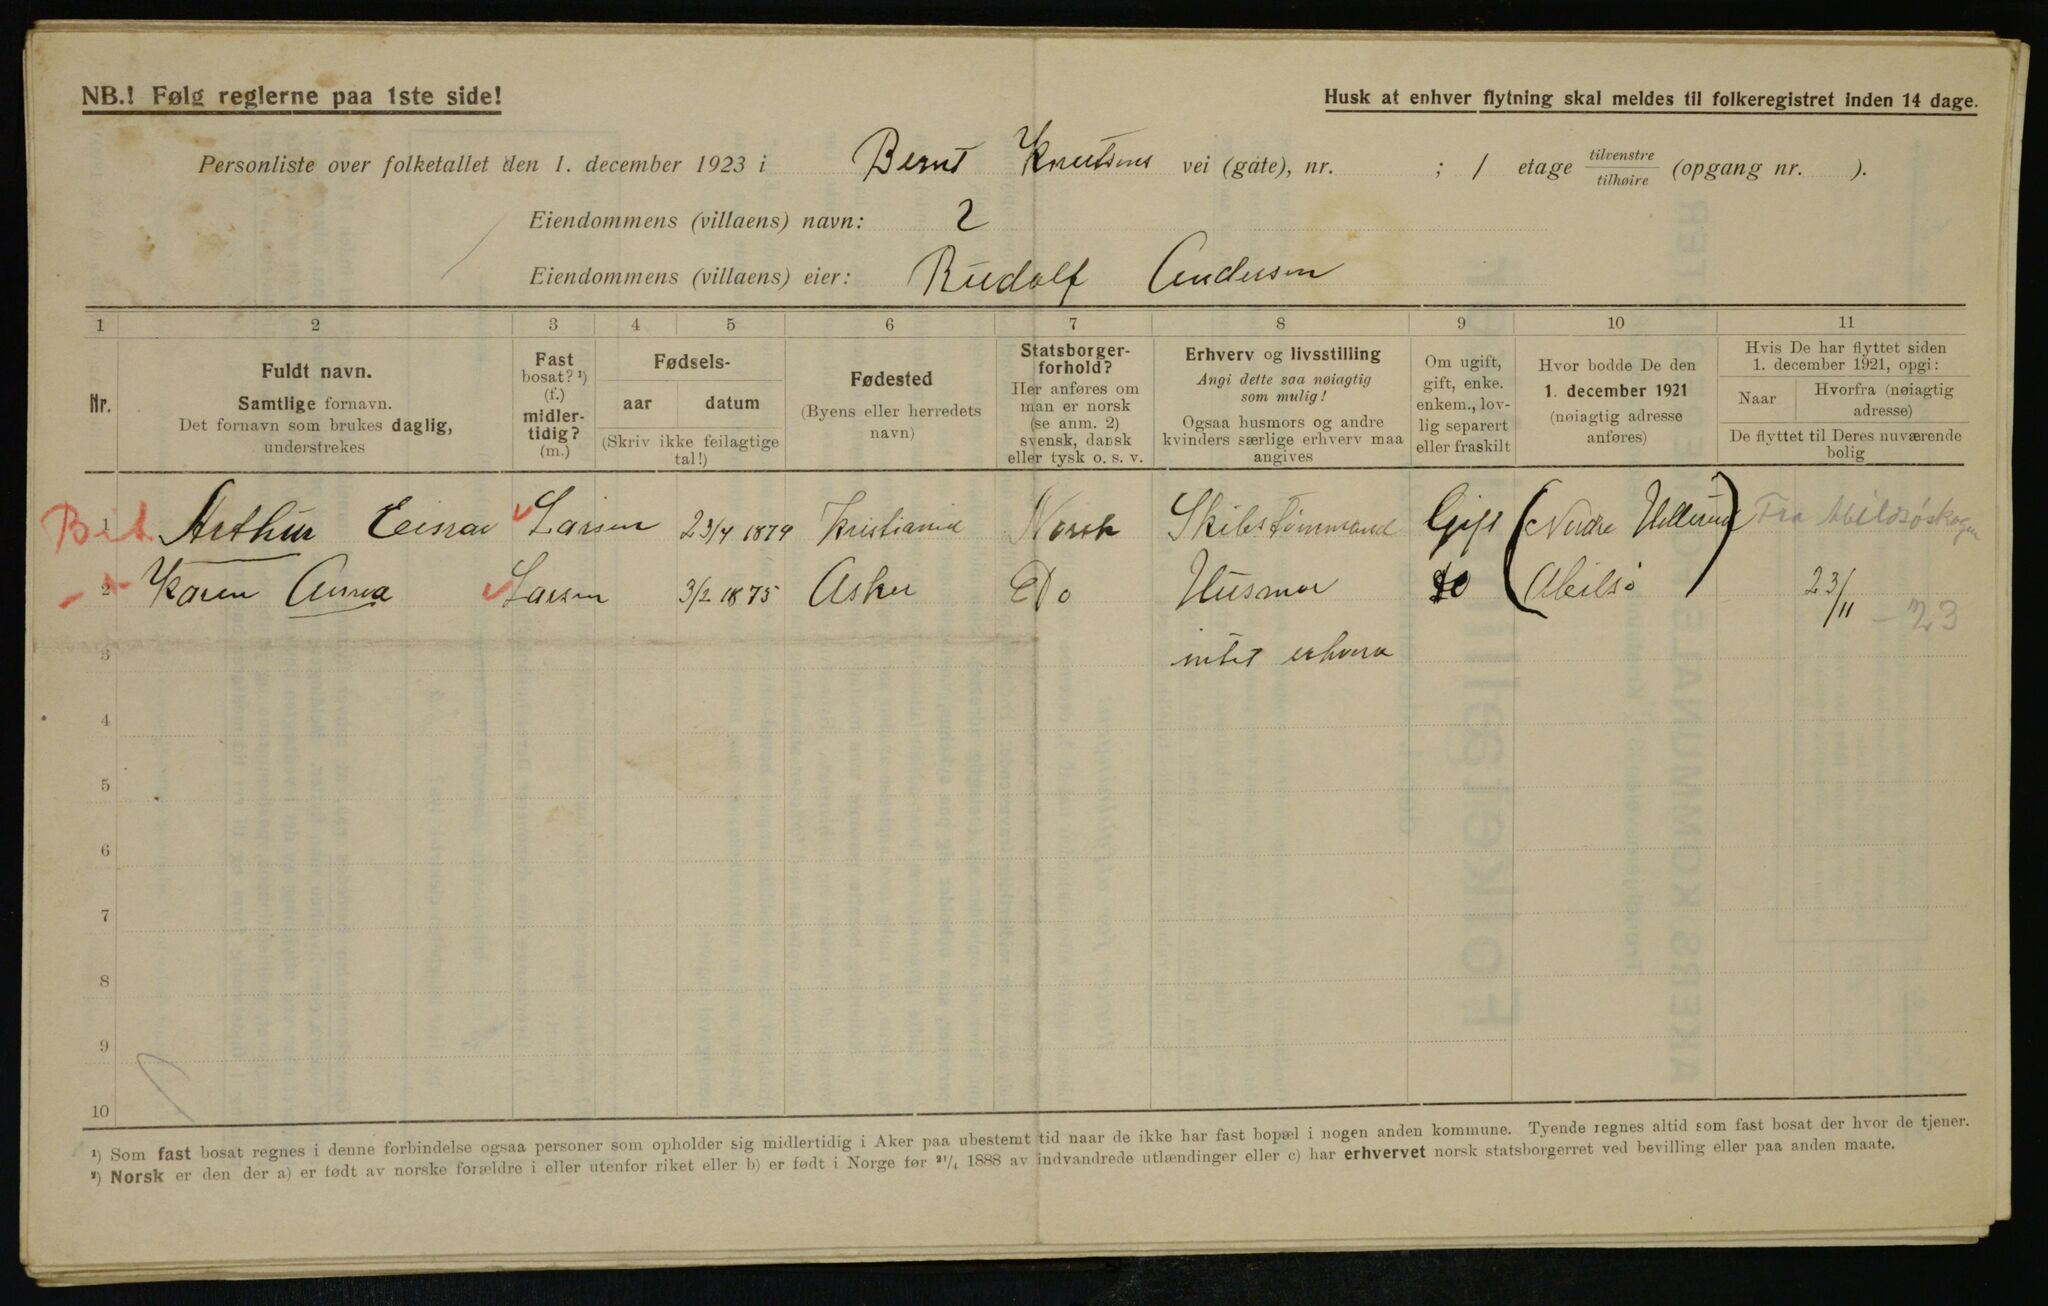 NB.! Følg reglerne paa 1ste side!
Husk at enhver flytning skal meldes til folkeregistret inden 14 dage.
Personliste over folketallet den 1. december 1923 i Bernt Knutsens vei (gate), nr. ; 1 etage tilvenstre/tilhøire (opgang nr. ).
Eiendommens (villaens) navn: 2
Eiendommens (villaens) eier: Rudolf Andersen
1 2 3 4 5 6 7 8 9 10 11
Nr.
Fuldt navn.
Samtlige fornavn.
Det fornavn som brukes daglig,
understrekes
Fast
bosat? ¹)
(f.)
midler-
tidig?
(m.)
Fødsels-
aar datum
(Skriv ikke feilagtige
tal!)
Fødested
(Byens eller herredets
navn)
Statsborger-
forhold?
Her anføres om
man er norsk
(se anm. 2)
svensk, dansk
eller tysk o. s. v.
Erhverv og livsstilling
Angi dette saa nøiagtig
som mulig!
Ogsaa husmors og andre
kvinders særlige erhverv maa
angives
Om ugift,
gift, enke.
enkem., lov-
lig separert
eller fraskilt
Hvor bodde De den
1. december 1921
(nøiagtig adresse
anføres)
Hvis De har flyttet siden
1. december 1921, opgi:
Naar
Hvorfra (nøiagtig
adresse)
De flyttet til Deres nuværende
bolig
1 Arthur Larsen 23/4 1879 Kristiania Norsk Skibstømmand Gift (Nordre Hellerud) Fra Abildsøskogen
2 Karen Anna Larsen 3/2 1875 Asker Do Husmor do Abilsø 23/11 - 23
3 intet erhverv
4
5
6
7
8
9
10
¹) Som fast bosat regnes i denne forbindelse ogsaa personer som opholder sig midlertidig i Aker paa ubestemt tid naar de ikke har fast bopæl i nogen anden kommune. Tyende regnes altid som fast bosat der hvor de tjener.
²) Norsk er den der a) er født av norske forældre i eller utenfor riket eller b) er født i Norge før ²¹/₄ 1888 av indvandrede utlændinger eller c) har erhvervet norsk statsborgerret ved bevilling eller paa anden maate.